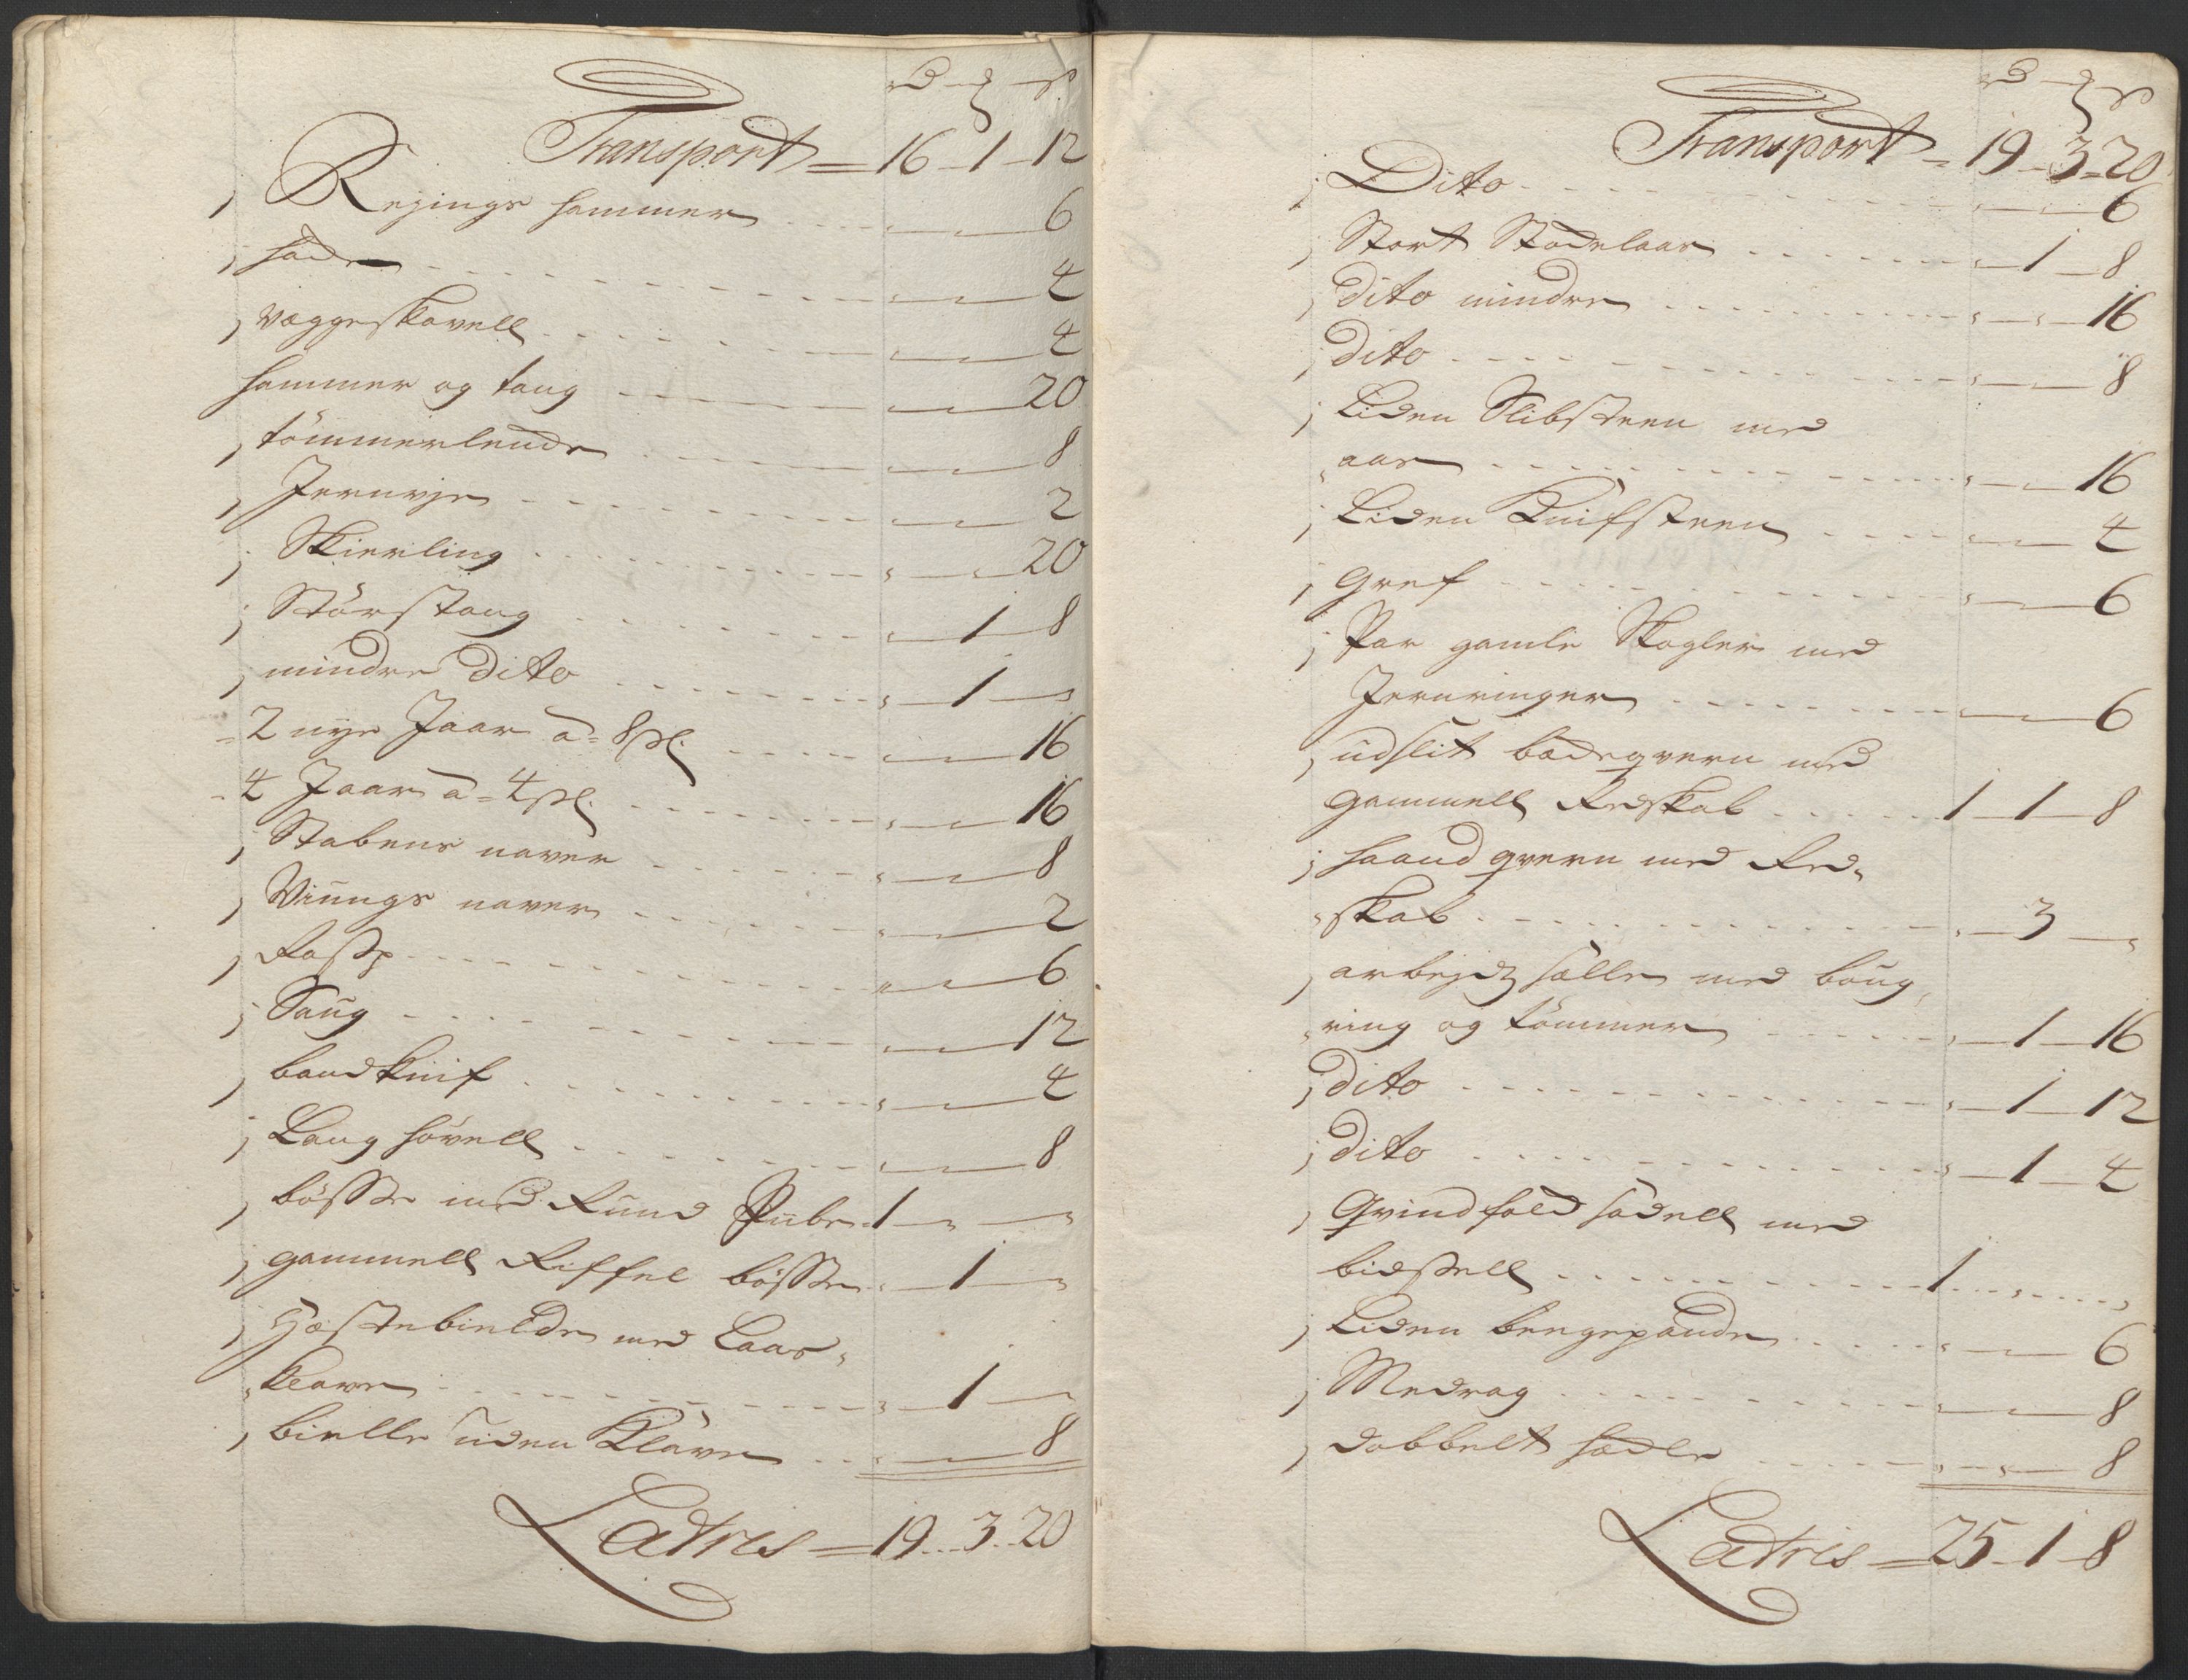 Transport = 16 - 1 - 12
1 Rejings hammer 6
1 sadr 4
1 væggeskavell 4
hammer og tang 20
1 tömmerlende 8
1 Jernvje 2
1 Skierling 20
1 Störstang 1 - 8
1 mindre dito 1 -
2 nye Jaar a = 8 sl. 16
4 Jaar a = 4 sl. 16
1 Stabens naver 8
1 Viinngs naver 2
1 Rasp 6
1 Saug 12
1 baandkniif 4
1 Lang hövell 8
1 bösse med Rund Piibe 1 - -
1 gammell Riffel bösse 1 -
1 Hæstebielde med Laas
klave 1 -
1 bielle uden Klave 8
Latris = 19 - 3 - 20
Transport = 19 - 3 - 20
1 Dito 6
1 Stort Stodelaas 1 - 8
1 dito mindre 16
1 dito 8
1 Liden Slibsteen med
aas 16
1 Liden Kniifsteen 4
1 Gref 6
1 Par gamle Skagler med
Jernringer 6
1 udslit bödeqvern med
gammell Redskab 1 - 1 - 8
1 haand qvern med Red
skab 3 -
1 arbejdz sælle med boug
ring og tömmer 1 - 16
1 dito 1 - 12
1 dito 1 - 4
1 Qvindfold sadell med
bidsell 1
1 Liden bengepande 6
1 Medrag 8
1 dobbelt sadle 8
Latris = 25 - 1 - 8